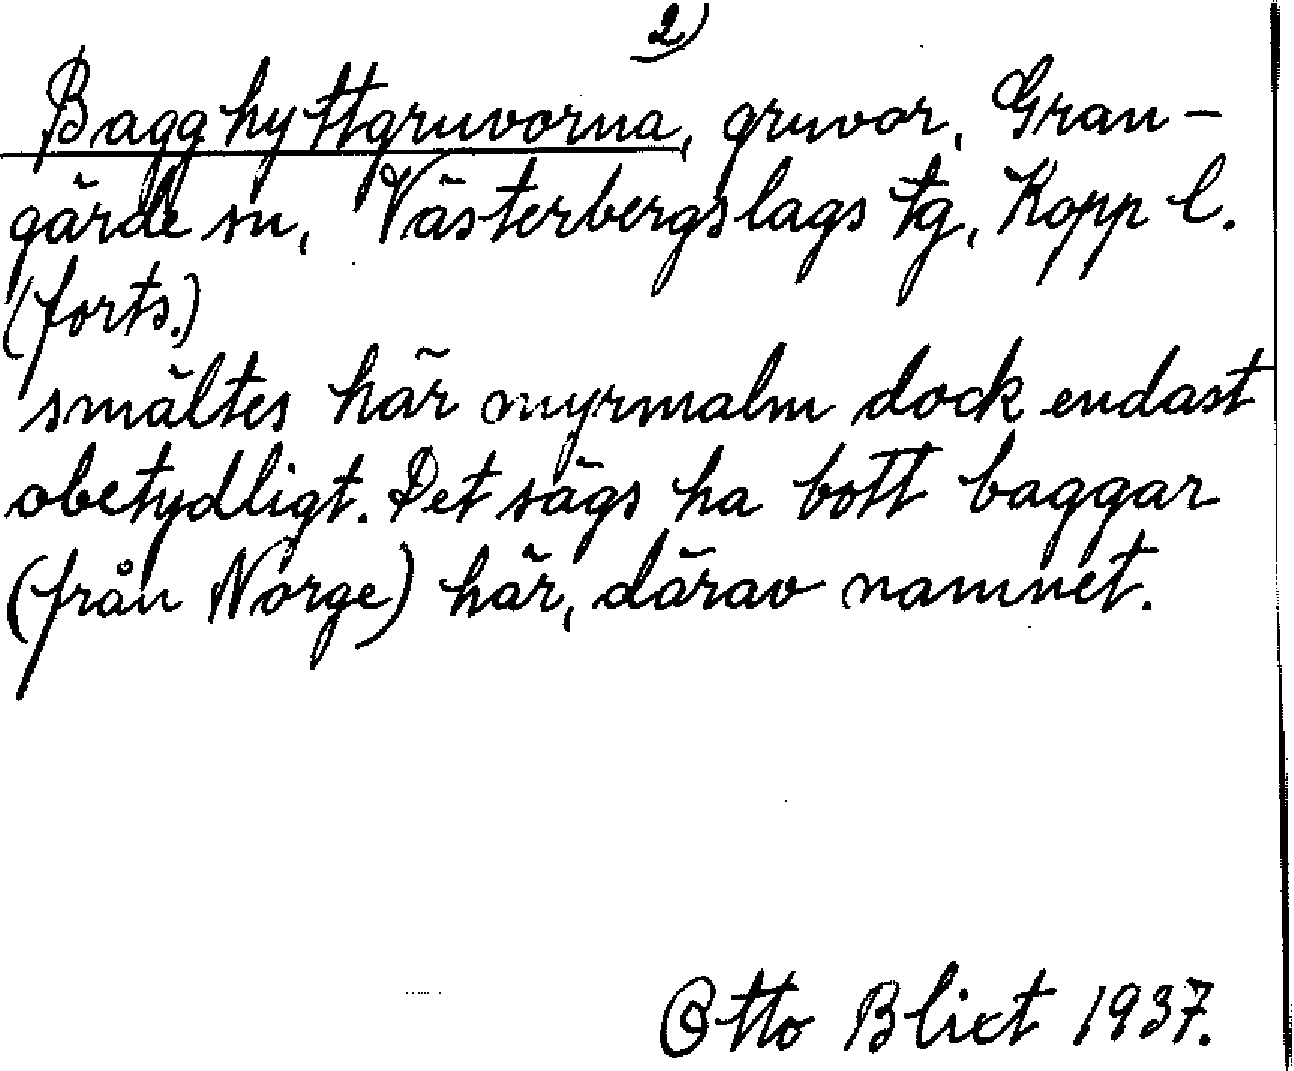 2)
Bagghyttgruvorna, gruvor, Gran-
gärde sn, Västerbergslags tg, Kopp l.
(forts.)
smältes här myrmalm dock endast
obetydligt. Det sägs ha bott baggar
(från Norge) här, därav namnet.
Otto Blixt 1937.